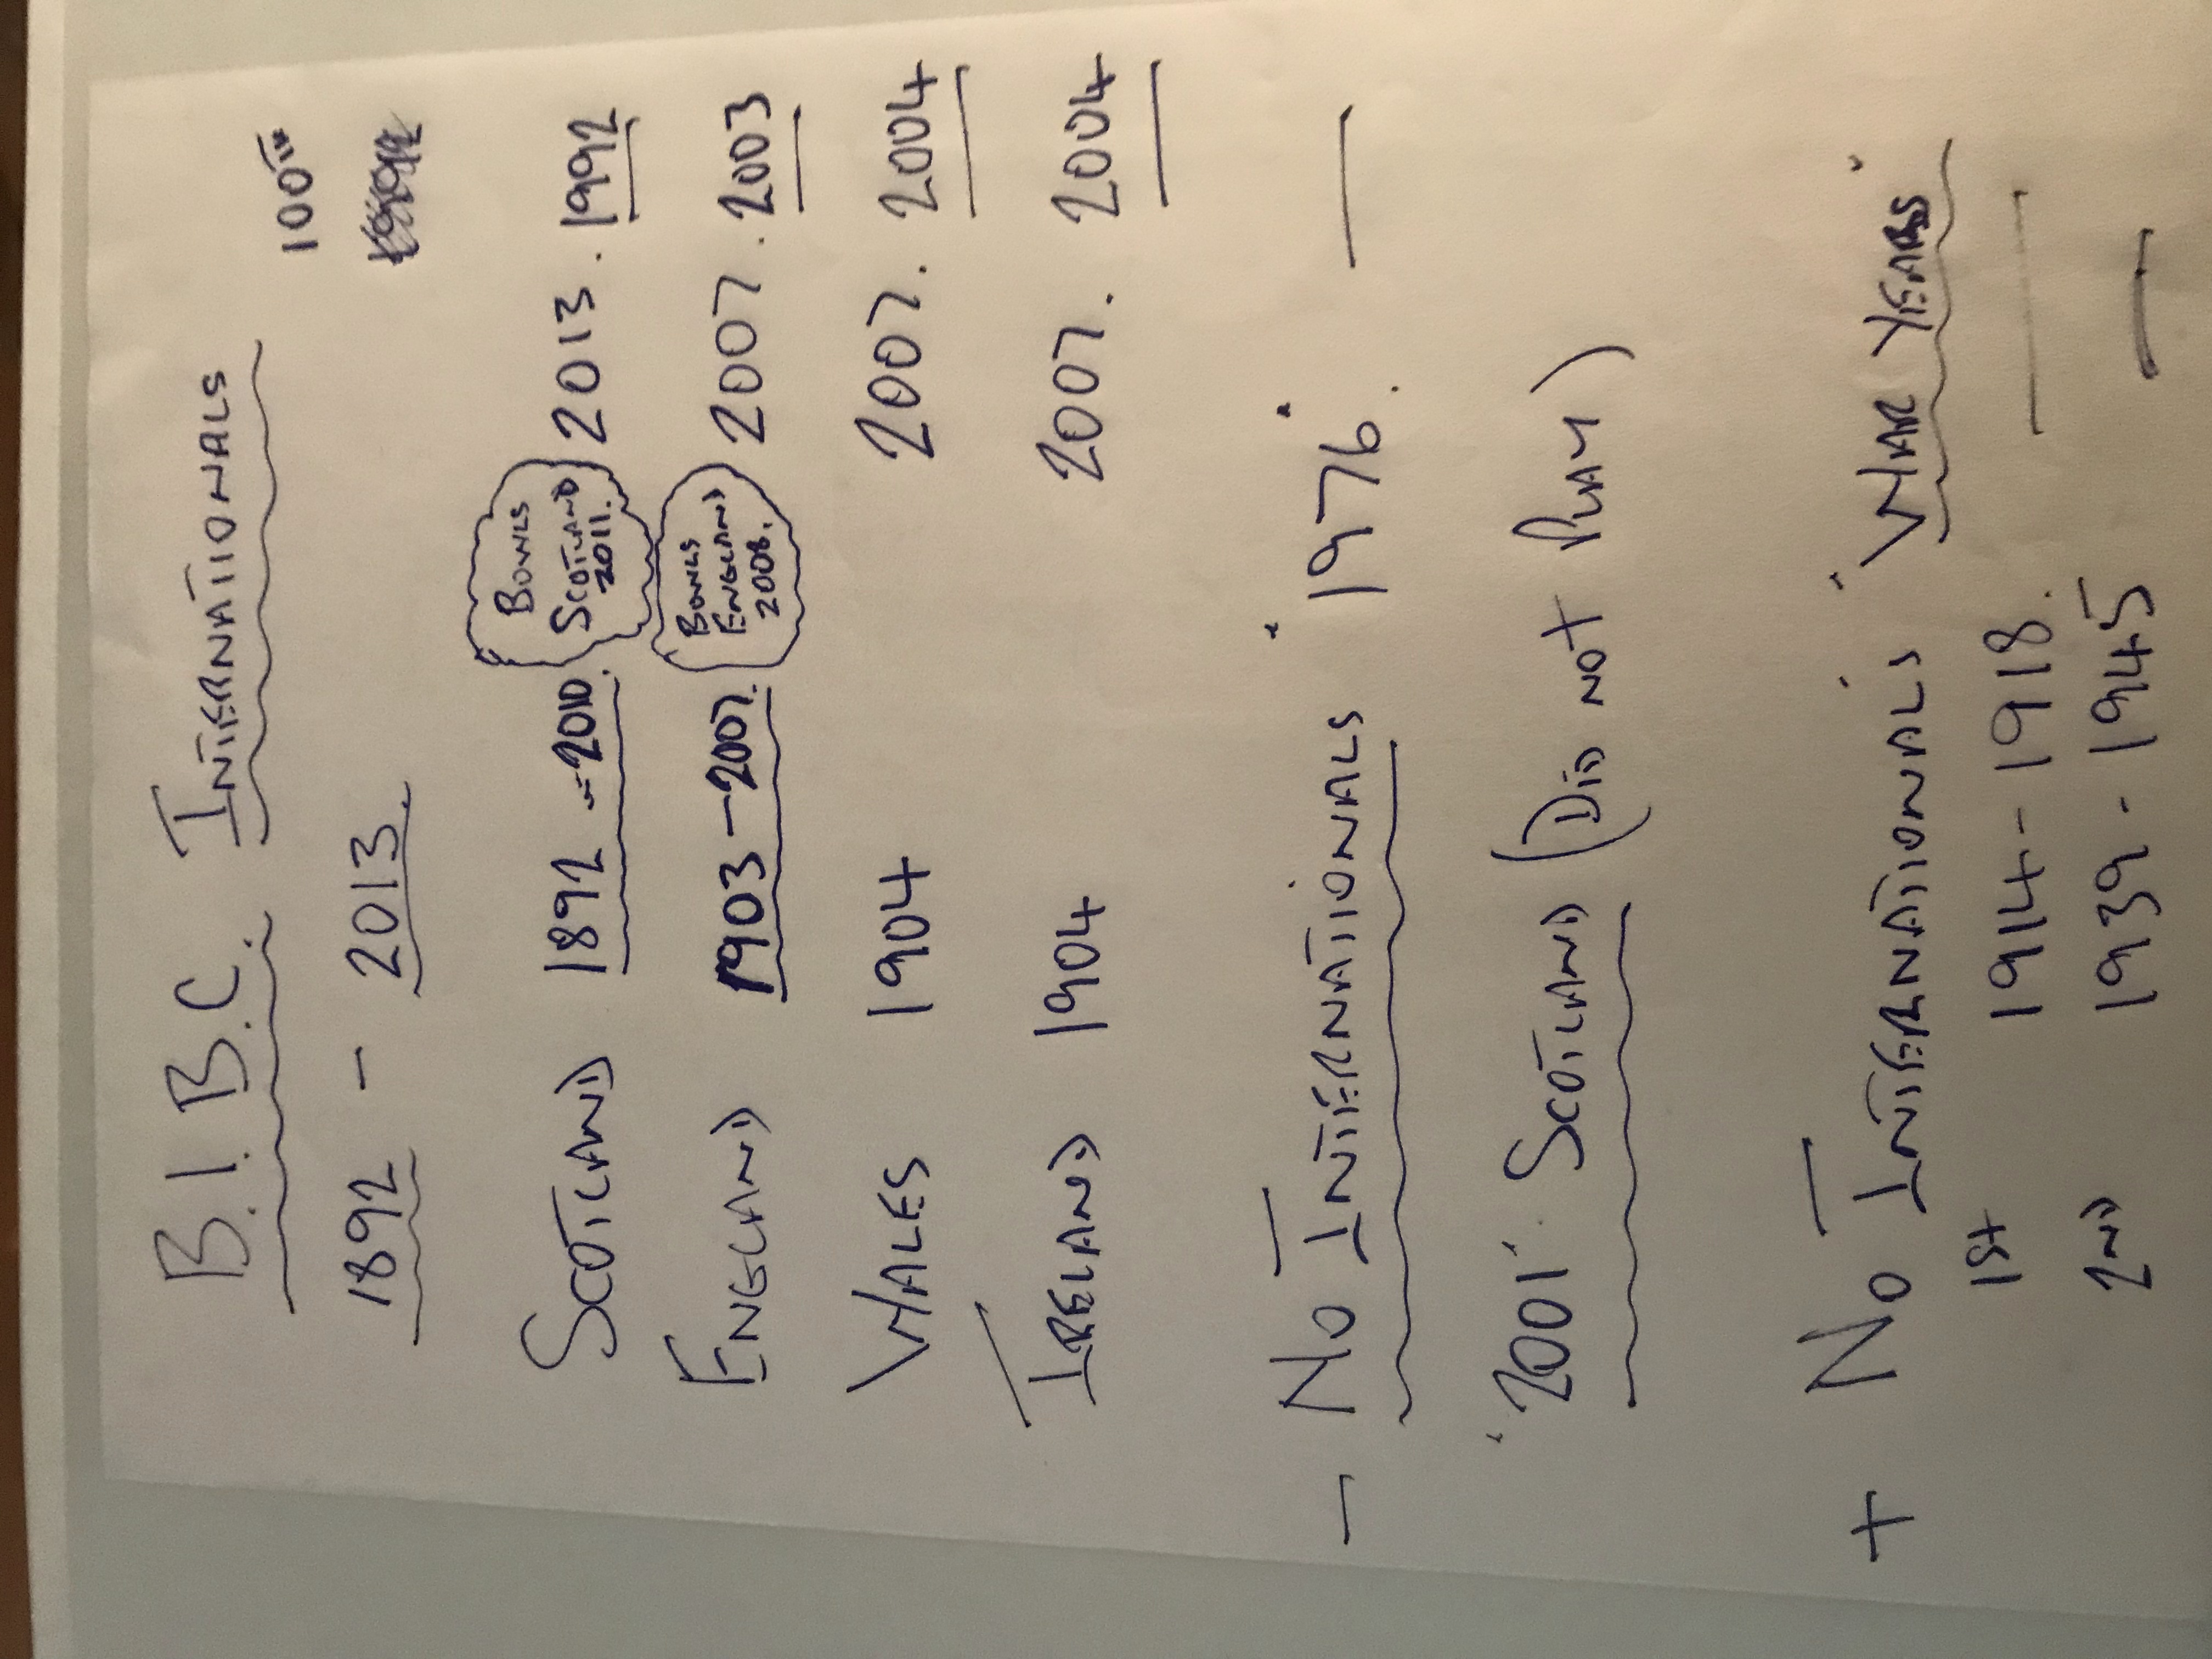 B.I.B.C. INTERNATIONALS
100TH
1892 - 2013.
SCOTLAND 1892 - 2010. BOWLS SCOTLAND 2011. 2013. 1992
ENGLAND 1903 - 2007. BOWLS ENGLAND 2008. 2007. 2003
WALES 1904 2007. 2004
IRELAND 1904 2007. 2004
- NO INTERNATIONALS "1976". -
"2001". SCOTLAND (DID NOT PLAY)
+ NO INTERNATIONALS "WAR YEARS"
1ST 1914 - 1918. -
2ND 1939 - 1945 -